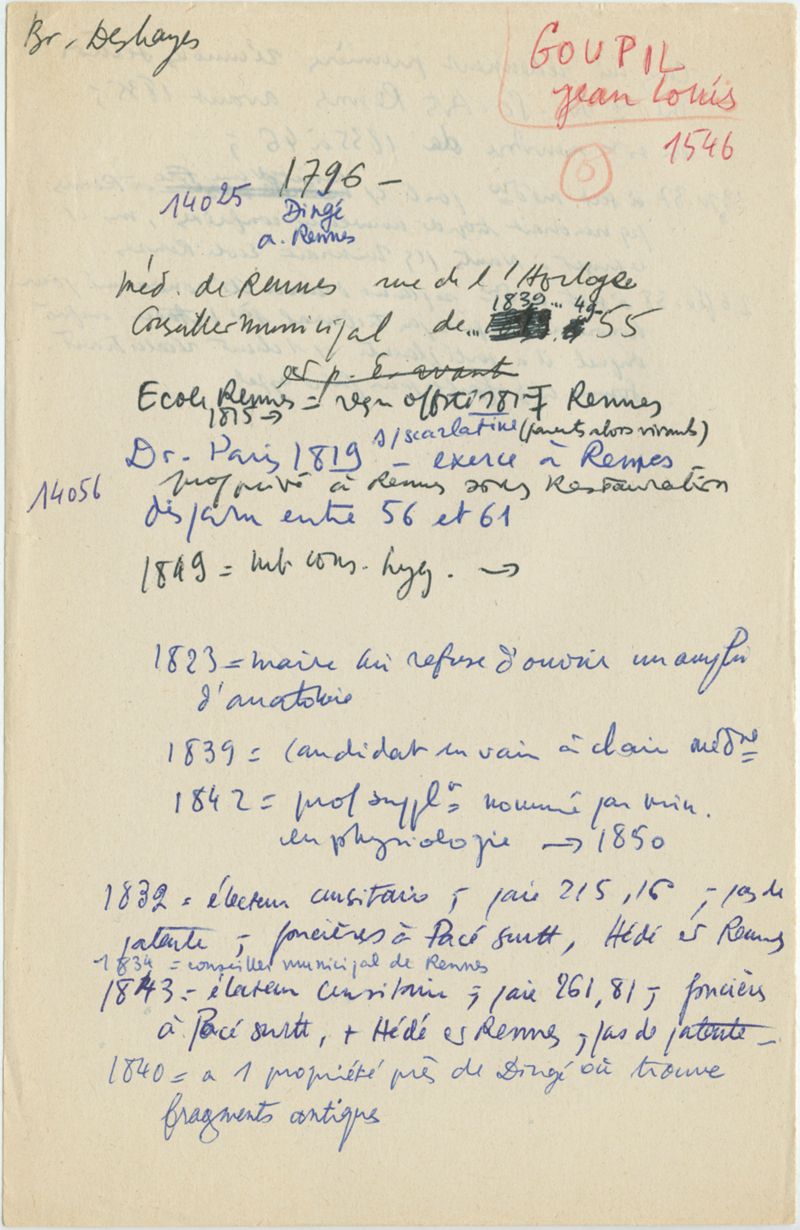 Br. Deshayes
GOUPIL
jean louis
1546
1796 –
14025
Dingé
a. Rennes
Méd. de Rennes rue de l'Horloge
1839... 49
Conseiller municipal de... 55
et p. ê. avant
Ecole Rennes = reçu Rennes
1815 →
s/scarlatine (parents alors vivants)
Dr. Paris 1819 – exerce à Rennes
14056
prof privé à Rennes sous Restauration
disparu entre 56 et 61
1849 = mb cons. hyg. →
1823 = maire lui refuse d'ouvrir un amphi
d'anatomie
1839 = candidat en vain à chaire médne
1842 = prof suppl. nommé par min.
en physiologie → 1850
1832 = électeur censitaire ; paie 215,16 ; pas de
patente ; foncières à Pacé surtt, Hédé et Rennes
1834 = conseiller municipal de Rennes
1843 = électeur censitaire ; paie 261,81 ; foncières
à Pacé surtt, + Hédé et Rennes ; pas de patente –
1840 = a 1 propriété près de Dingé où trouve
fragments antiques